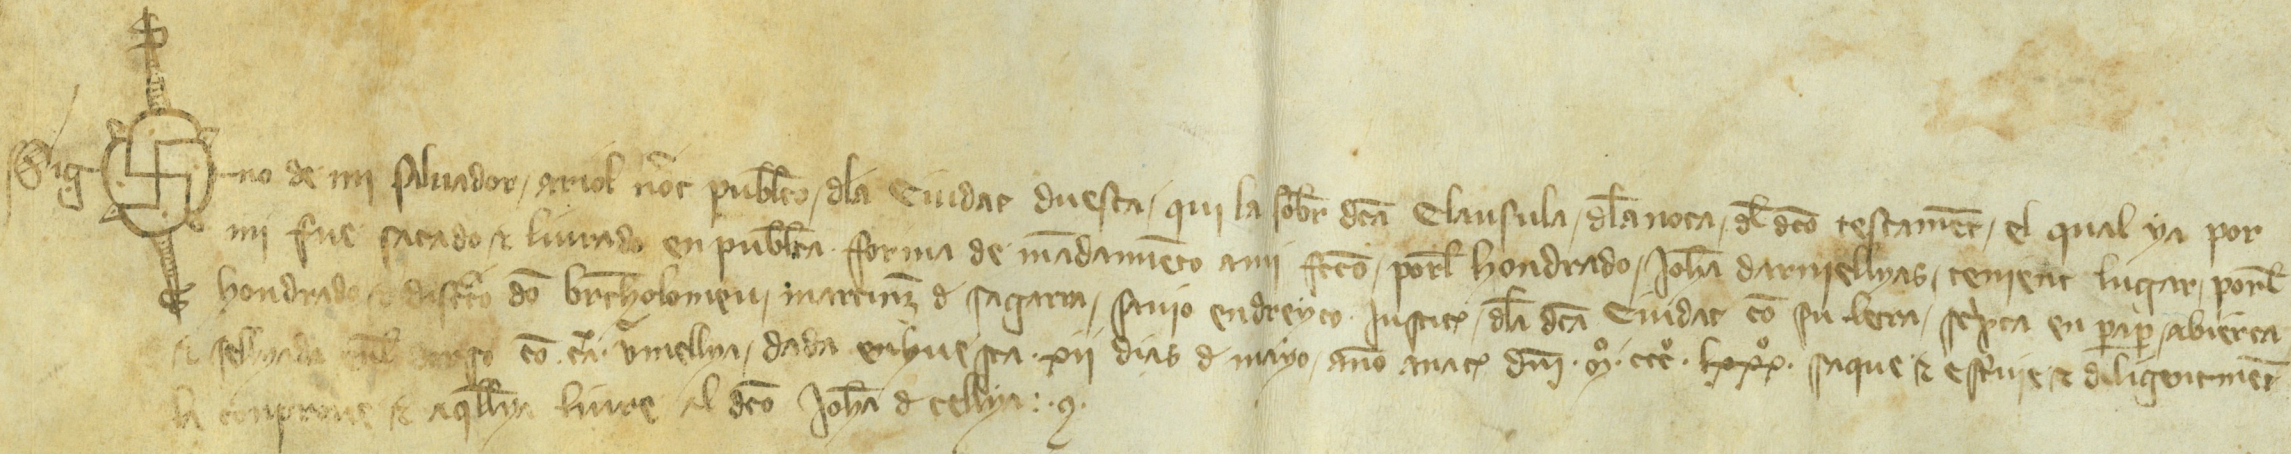 Sig no de mi Saluador, ariol not publco, dla Ciudat duesca, qui la sobr dca Clausula, dla nota, dl dco testament, el qual ya por
mi fue sacado & liurado en publca fforma de mandamiento a mi fcco, porl hondrado, Joha darniellyas, tenient lugar, porl
hondrado & discreto do bertholomeu, martinz d sagarra, sauio en dreyto Justicia, dla dca Ciudat co su letra, scripta en paper, abierta
& sellyada enl dorso co cera vmellya, dada en huesca xii dias d mayo, ano a nat dni mº cccº lxxxº saque & escriuie & diligentment
la conproue & aqllya liure al dco Joha d cellya